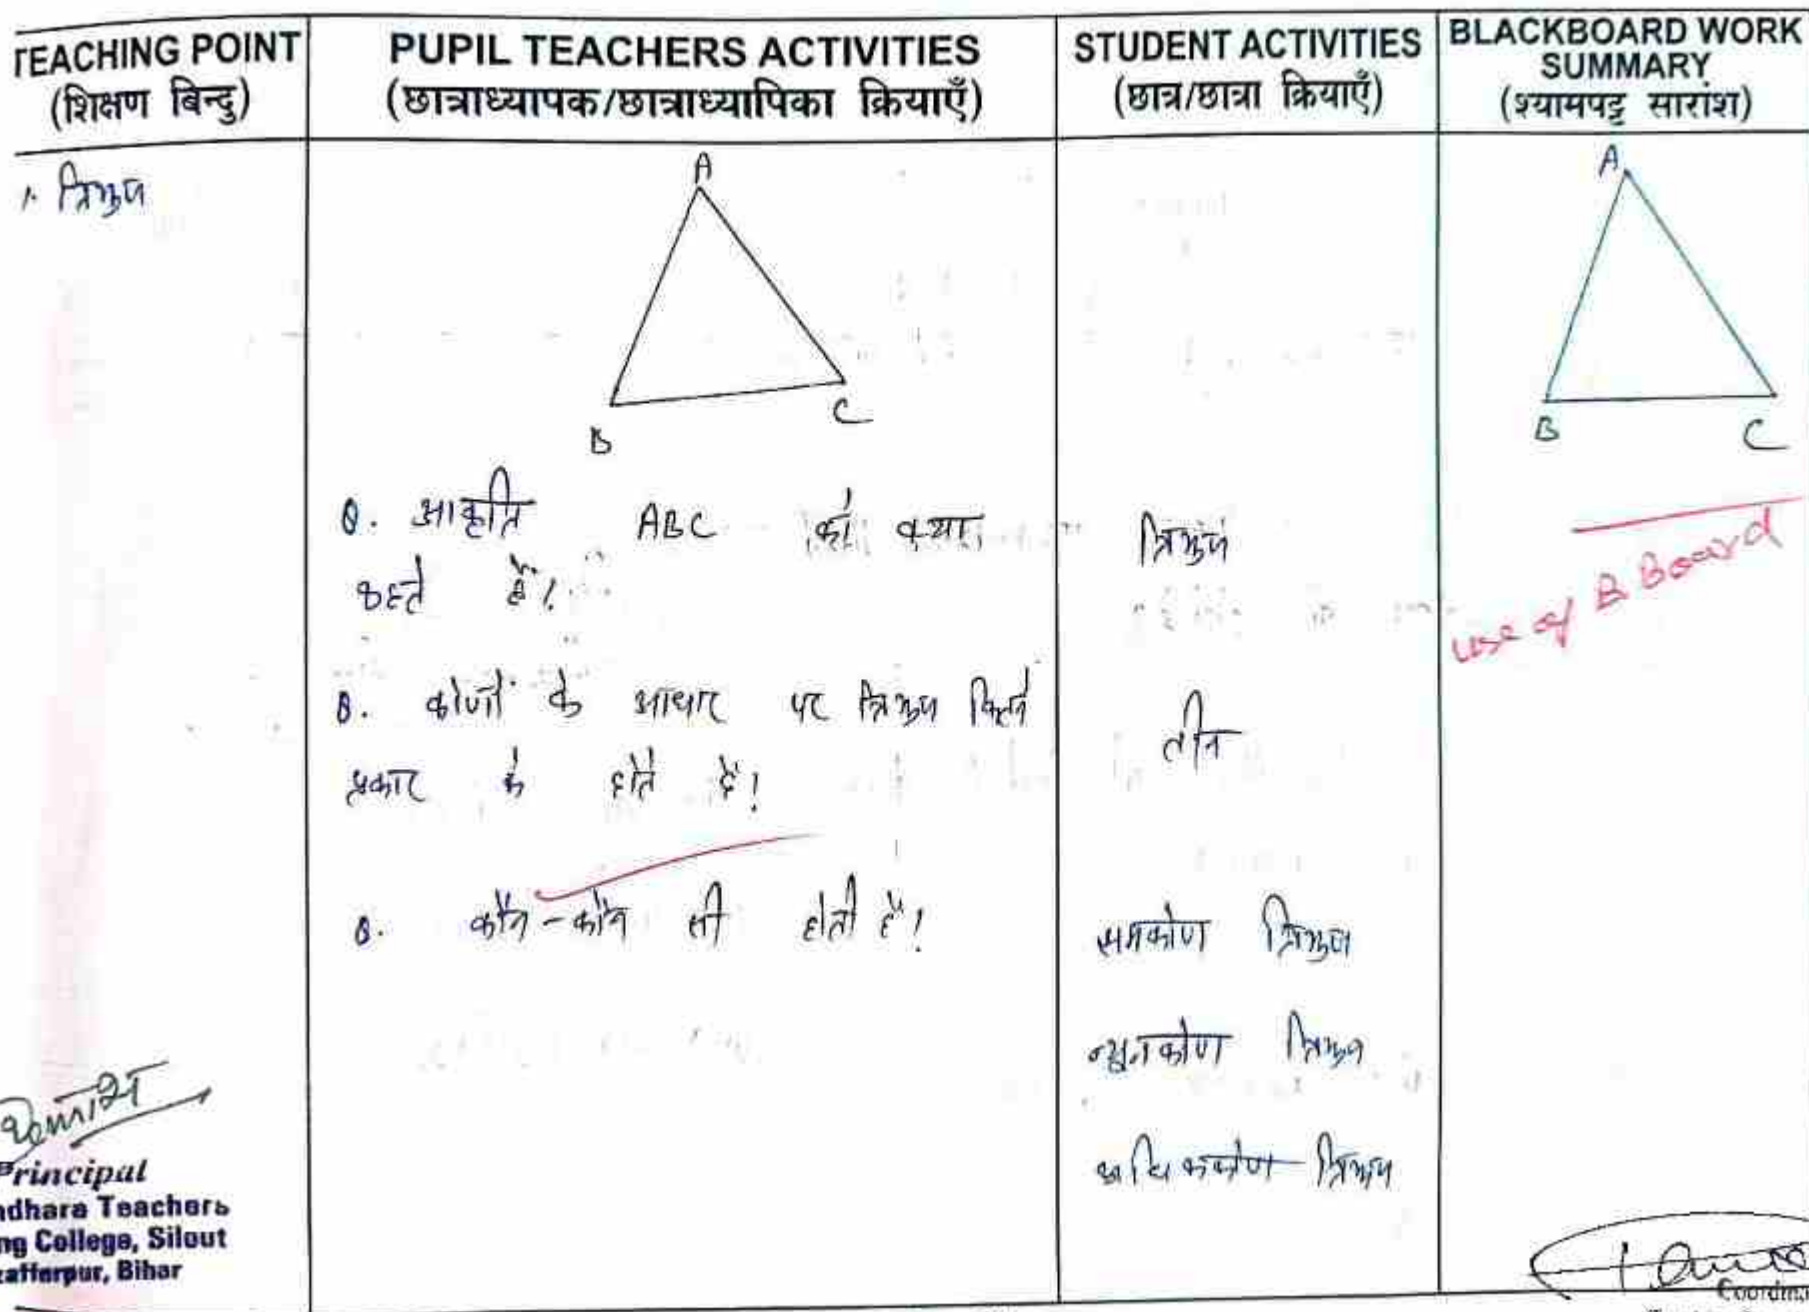 TEACHING POINT
(शिक्षण बिन्दु)
PUPIL TEACHERS ACTIVITIES
(छात्राध्यापक/छात्राध्यापिका क्रियाएँ)
STUDENT ACTIVITIES
(छात्र/छात्रा क्रियाएँ)
BLACKBOARD WORK
SUMMARY
(श्यामपट्ट सारांश)
1. त्रिभुज
A
B
C
Q. आकृति ABC को क्या
कहते हैं?
Q. कोणों के आधार पर त्रिभुज कितने
प्रकार के होते हैं?
Q. कौन-कौन सी होती हैं?
त्रिभुज
तीन
समकोण त्रिभुज
न्यूनकोण त्रिभुज
अधिककोण त्रिभुज
A
B
C
use of B Board
Principal
dhara Teachers
ng College, Silout
zaffarpur, Bihar
Coordina